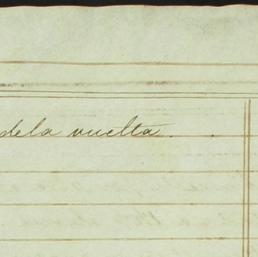 dela vuelta.